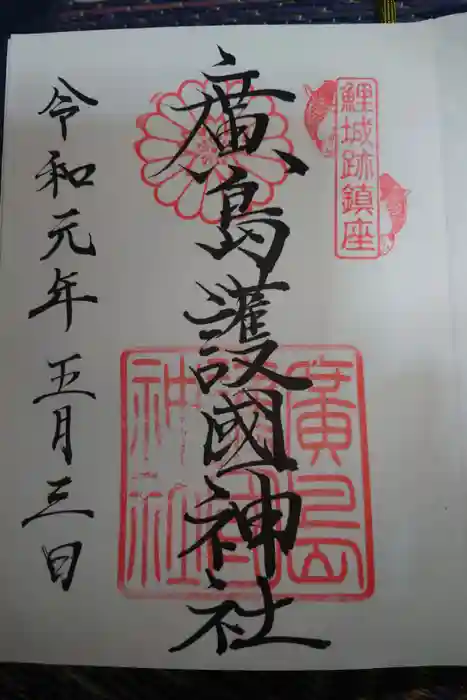 鯉城跡鎮座
廣島護國神社
廣島護國神社
令和元年五月三日